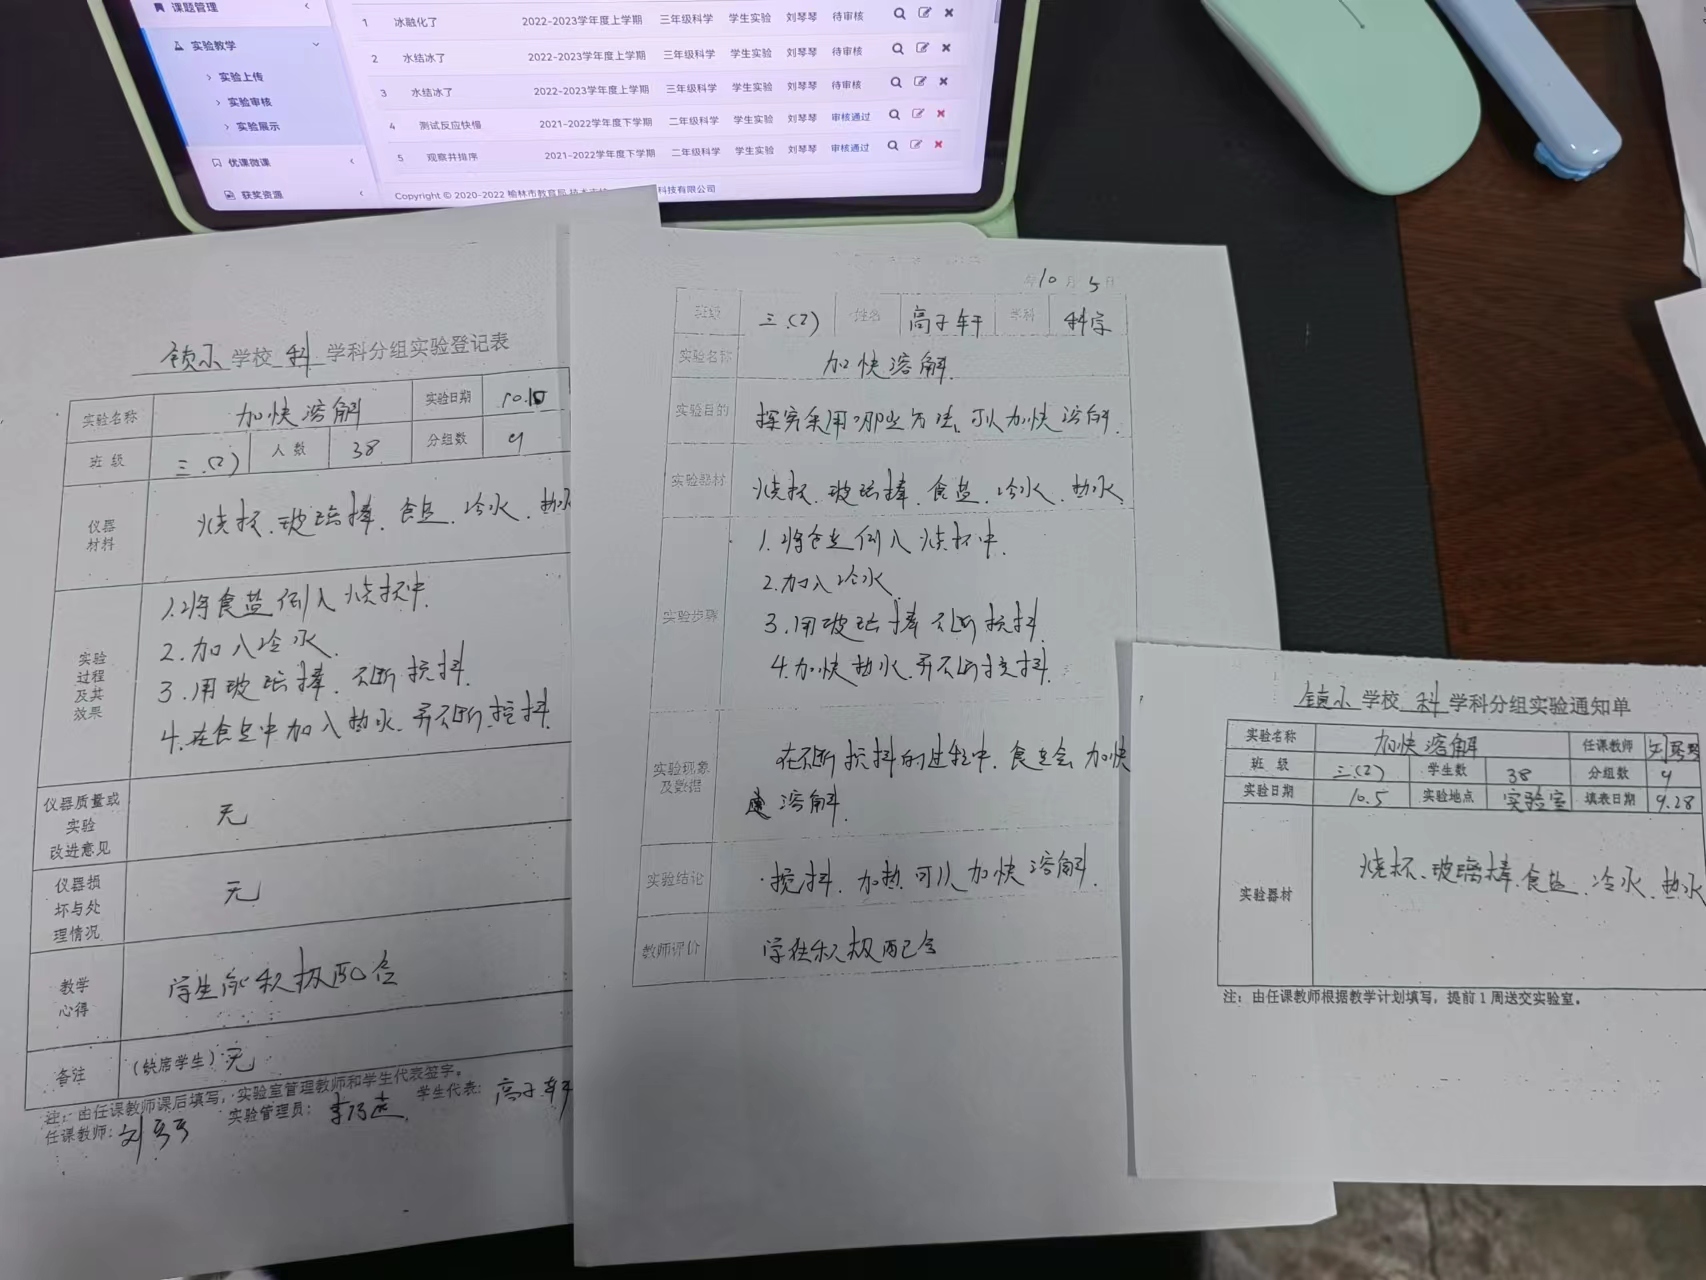 课题管理
实验教学
实验上传
实验审核
实验展示
优课微课
获奖资源
1 冰融化了 2022-2023学年度上学期 三年级科学 学生实验 刘琴琴 待审核
2 水结冰了 2022-2023学年度上学期 三年级科学 学生实验 刘琴琴 待审核
3 水结冰了 2022-2023学年度上学期 三年级科学 学生实验 刘琴琴 待审核
4 测试反应快慢 2021-2022学年度下学期 二年级科学 学生实验 刘琴琴 审核通过
5 观察并排序 2021-2022学年度下学期 二年级科学 学生实验 刘琴琴 审核通过
Copyright © 2020-2022 榆林市教育局 科技有限公司
镇小学校 科 学科分组实验登记表
实验名称 加快溶解 实验日期
班 级 三.(2) 人 数 38 分组数 9
仪器材料 烧杯、玻璃棒、食盐、冷水、热水
实验过程及其效果
1.将食盐倒入烧杯中.
2.加入冷水.
3.用玻璃棒、不断搅拌.
4.在食盐中加入热水.并不断搅拌.
仪器质量或实验改进意见 无
仪器损坏与处理情况 无
教学心得 学生能积极配合
备注 (缺席学生)无
注:由任课教师课后填写,实验室管理教师和学生代表签字。
任课教师: 刘琴琴 实验管理员: 学生代表: 高子轩
年10月5日
班级 三.(2) 姓名 高子轩 学科 科学
实验名称 加快溶解.
实验目的 探究采用哪些方法、可以加快溶解.
实验器材 烧杯、玻璃棒、食盐、冷水、热水
实验步骤
1.将食盐倒入烧杯中.
2.加入冷水
3.用玻璃棒不断搅拌.
4.加快热水.并不断搅拌.
实验现象及数据 在不断搅拌的过程中,食盐会加快
溶解.
实验结论 搅拌、加热可以加快溶解.
教师评价 学生积极配合
镇小学校 科 学科分组实验通知单
实验名称 加快溶解 任课教师 刘琴琴
班 级 三.(2) 学生数 38 分组数 9
实验日期 10.5 实验地点 实验室 填表日期 9.28
实验器材 烧杯、玻璃棒、食盐、冷水、热水
注:由任课教师根据教学计划填写,提前1周送交实验室。